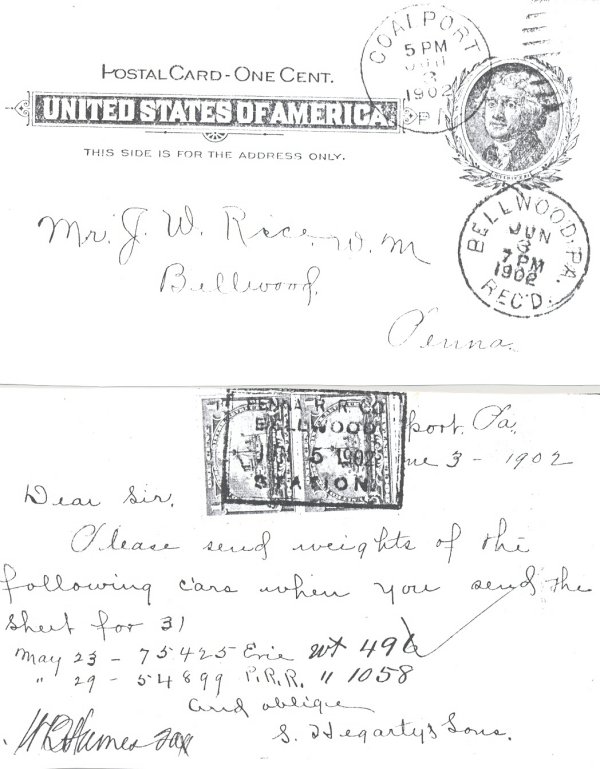 COALPORT
5 PM
JUN
3
1902
PA
POSTAL CARD - ONE CENT.
UNITED STATES OF AMERICA.
THIS SIDE IS FOR THE ADDRESS ONLY.
BELLWOOD, PA.
JUN
3
7 PM
1902
REC'D.
Mr. J. W. Rice, W. M
Bellwood,
Penna.
PENNA R. R. CO
BELLWOOD
JUN 5 1902
STATION
port, Pa.
ne 3 - 1902
Dear Sir,
Please send weights of the
following cars when you send the
sheet for 31
May 23 - 75425 Erie wt 496
" 29 - 54899 P.R.R. " 1058
and oblige
S. Hegartys Sons.